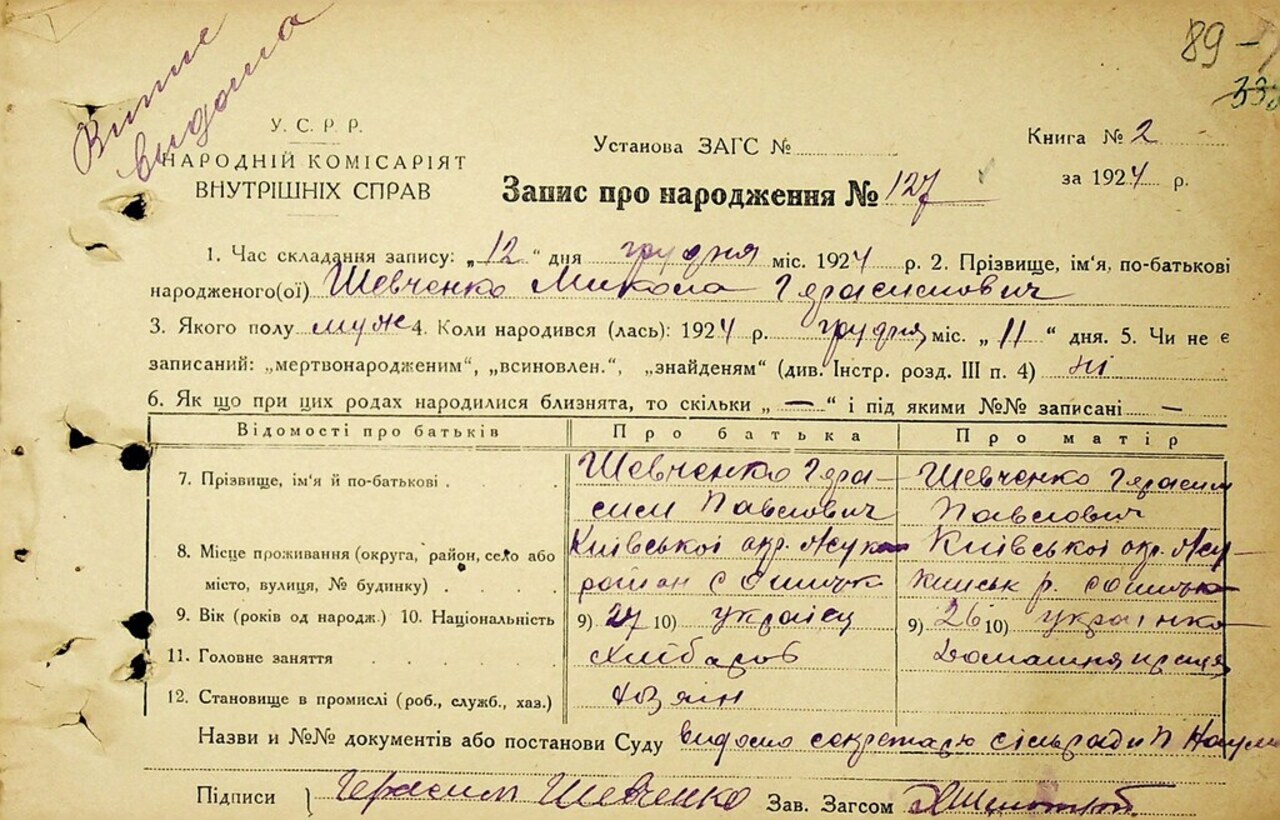 89 -
Випис
видано
У. С. Р. Р.
НАРОДНІЙ КОМІСАРІЯТ
ВНУТРІШНІХ СПРАВ
Установа ЗАГС №
Книга № 2
за 1924 р.
Запис про народження № 127
1. Час складання запису: „12“ дня грудня міс. 1924 р. 2. Прізвище, ім'я, по-батькові
народженого(ої) Шевченко Микола Герасимович
3. Якого полу муж 4. Коли народився (лась): 1924 р. грудня міс. „11“ дня. 5. Чи не є
записаний: „мертвонародженим“, „всиновлен.“, „знайденям“ (див. Інстр. розд. III п. 4) ні
6. Як що при цих родах народилися близнята, то скільки „—“ і під якими №№ записані —
Відомості про батьків Про батька Про матір
7. Прізвище, ім'я й по-батькові Шевченко Гера- Шевченко Герасим
сим Павлович Павлович
8. Місце проживання (округа, район, село або Київської окр. Київської окр.
місто, вулиця, № будинку) район с р. с
9. Вік (років од народж.) 10. Національність 9) 27 10) українец 9) 26 10) українка
11. Головне заняття Хлібороб Домашня праця
12. Становище в промислі (роб., служб., хаз.) хозяін
Назви и №№ документів або постанови Суду видомо секретарю сільради П
Підписи Герасим Шевченко Зав. Загсом